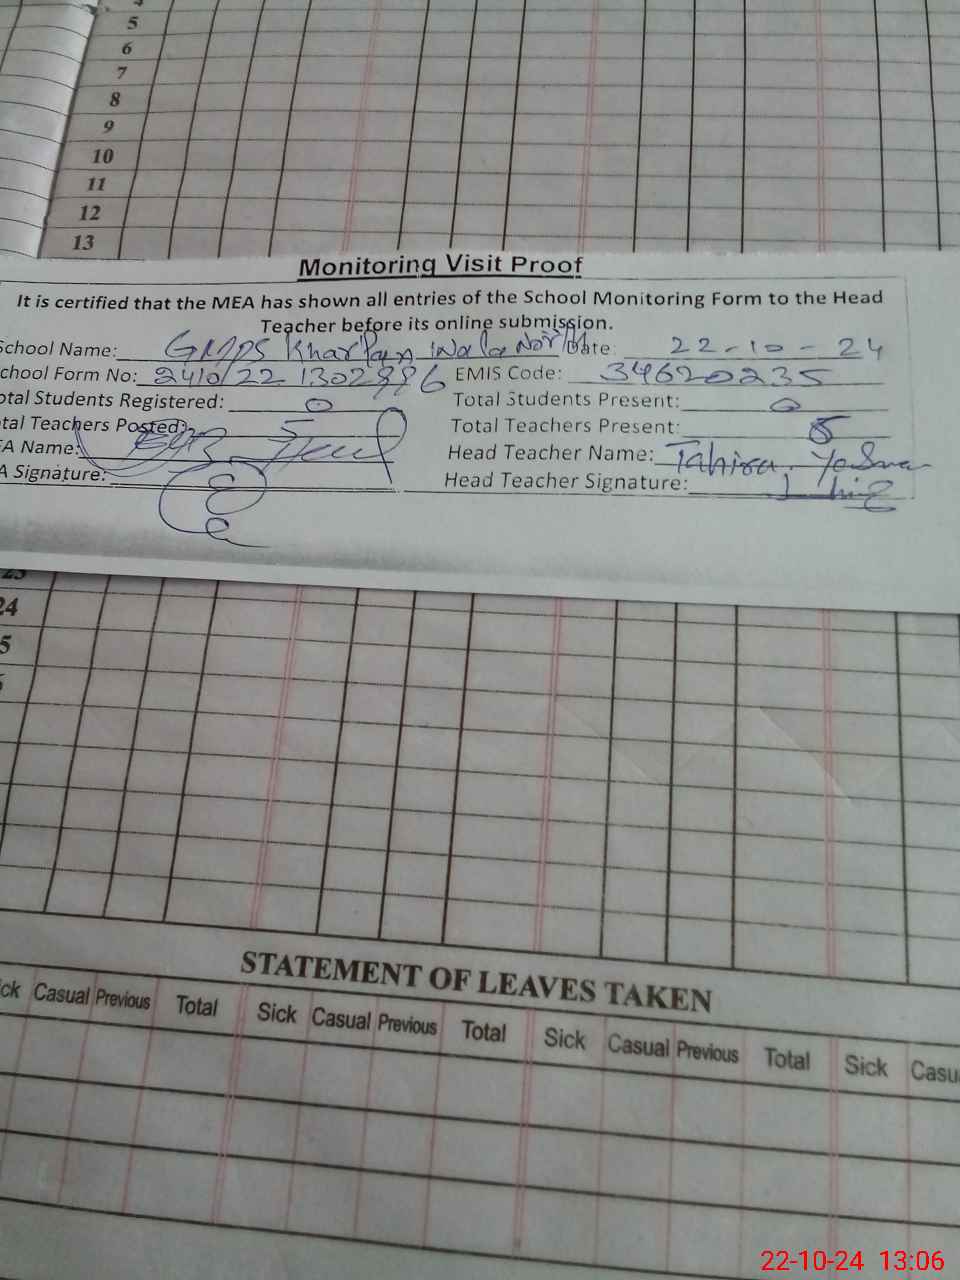 5
6
7
8
9
10
11
12
13
Monitoring Visit Proof
It is certified that the MEA has shown all entries of the School Monitoring Form to the Head
Teacher before its online submission.
School Name: GMPS Wala North Date: 22-10-24
chool Form No: 2410/22 1302886 EMIS Code: 34620235
otal Students Registered: 0 Total Students Present: 0
tal Teachers Posted: 5 Total Teachers Present: 5
EA Name: Head Teacher Name: Tahira
A Signature: Head Teacher Signature:
23
24
5
STATEMENT OF LEAVES TAKEN
ick Casual Previous Total Sick Casual Previous Total Sick Casual Previous Total Sick Casu
22-10-24 13:06